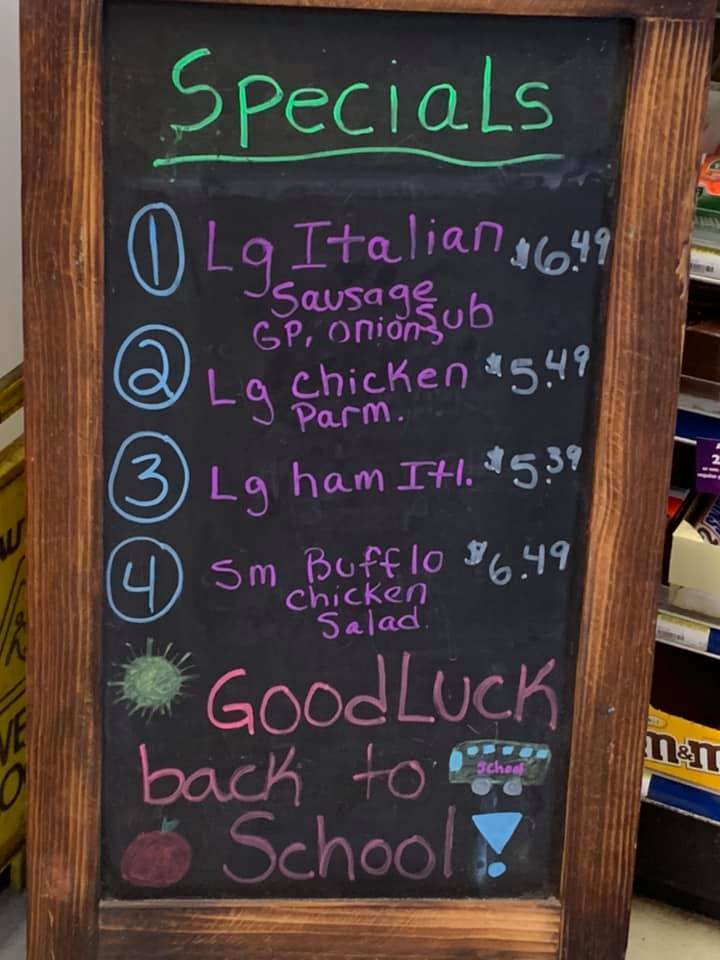 Specials
1 Lg Italian $6.49
Sausage Sub
GP, onions
2 Lg chicken $5.49
Parm.
3 Lg ham Itl. $5.39
4 Sm Bufflo $6.49
chicken
Salad
Good Luck
back to
School
School!
m&m